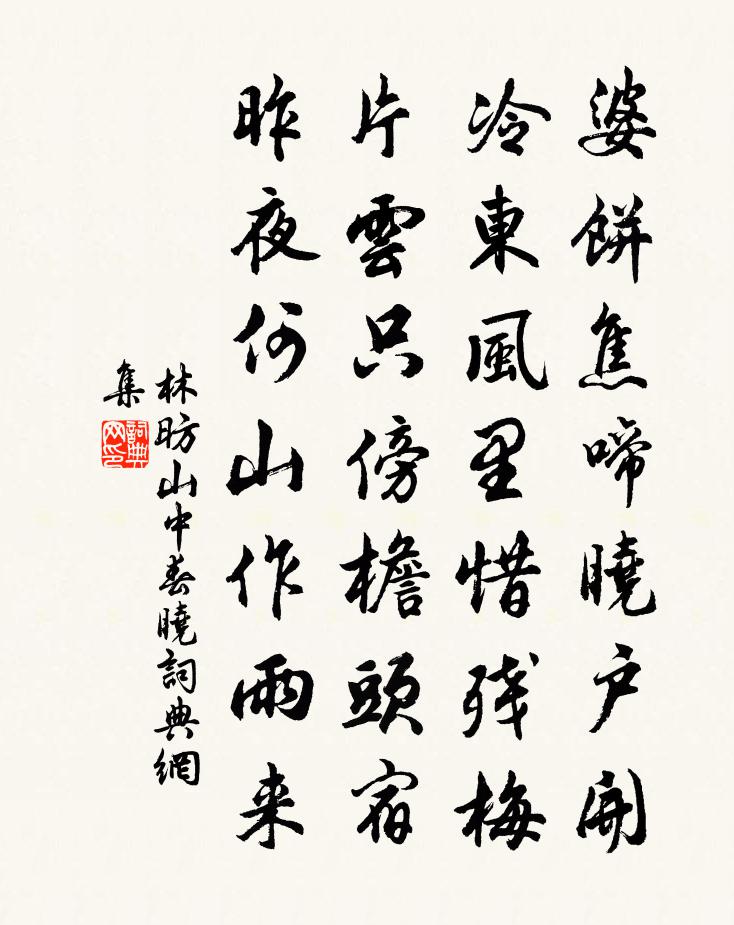 婆餅焦啼曉户開
冷東風里惜殘梅
片雲只傍檐頭宿
昨夜何山作雨来
林昉山中春曉詞典網
集
詞典
网印